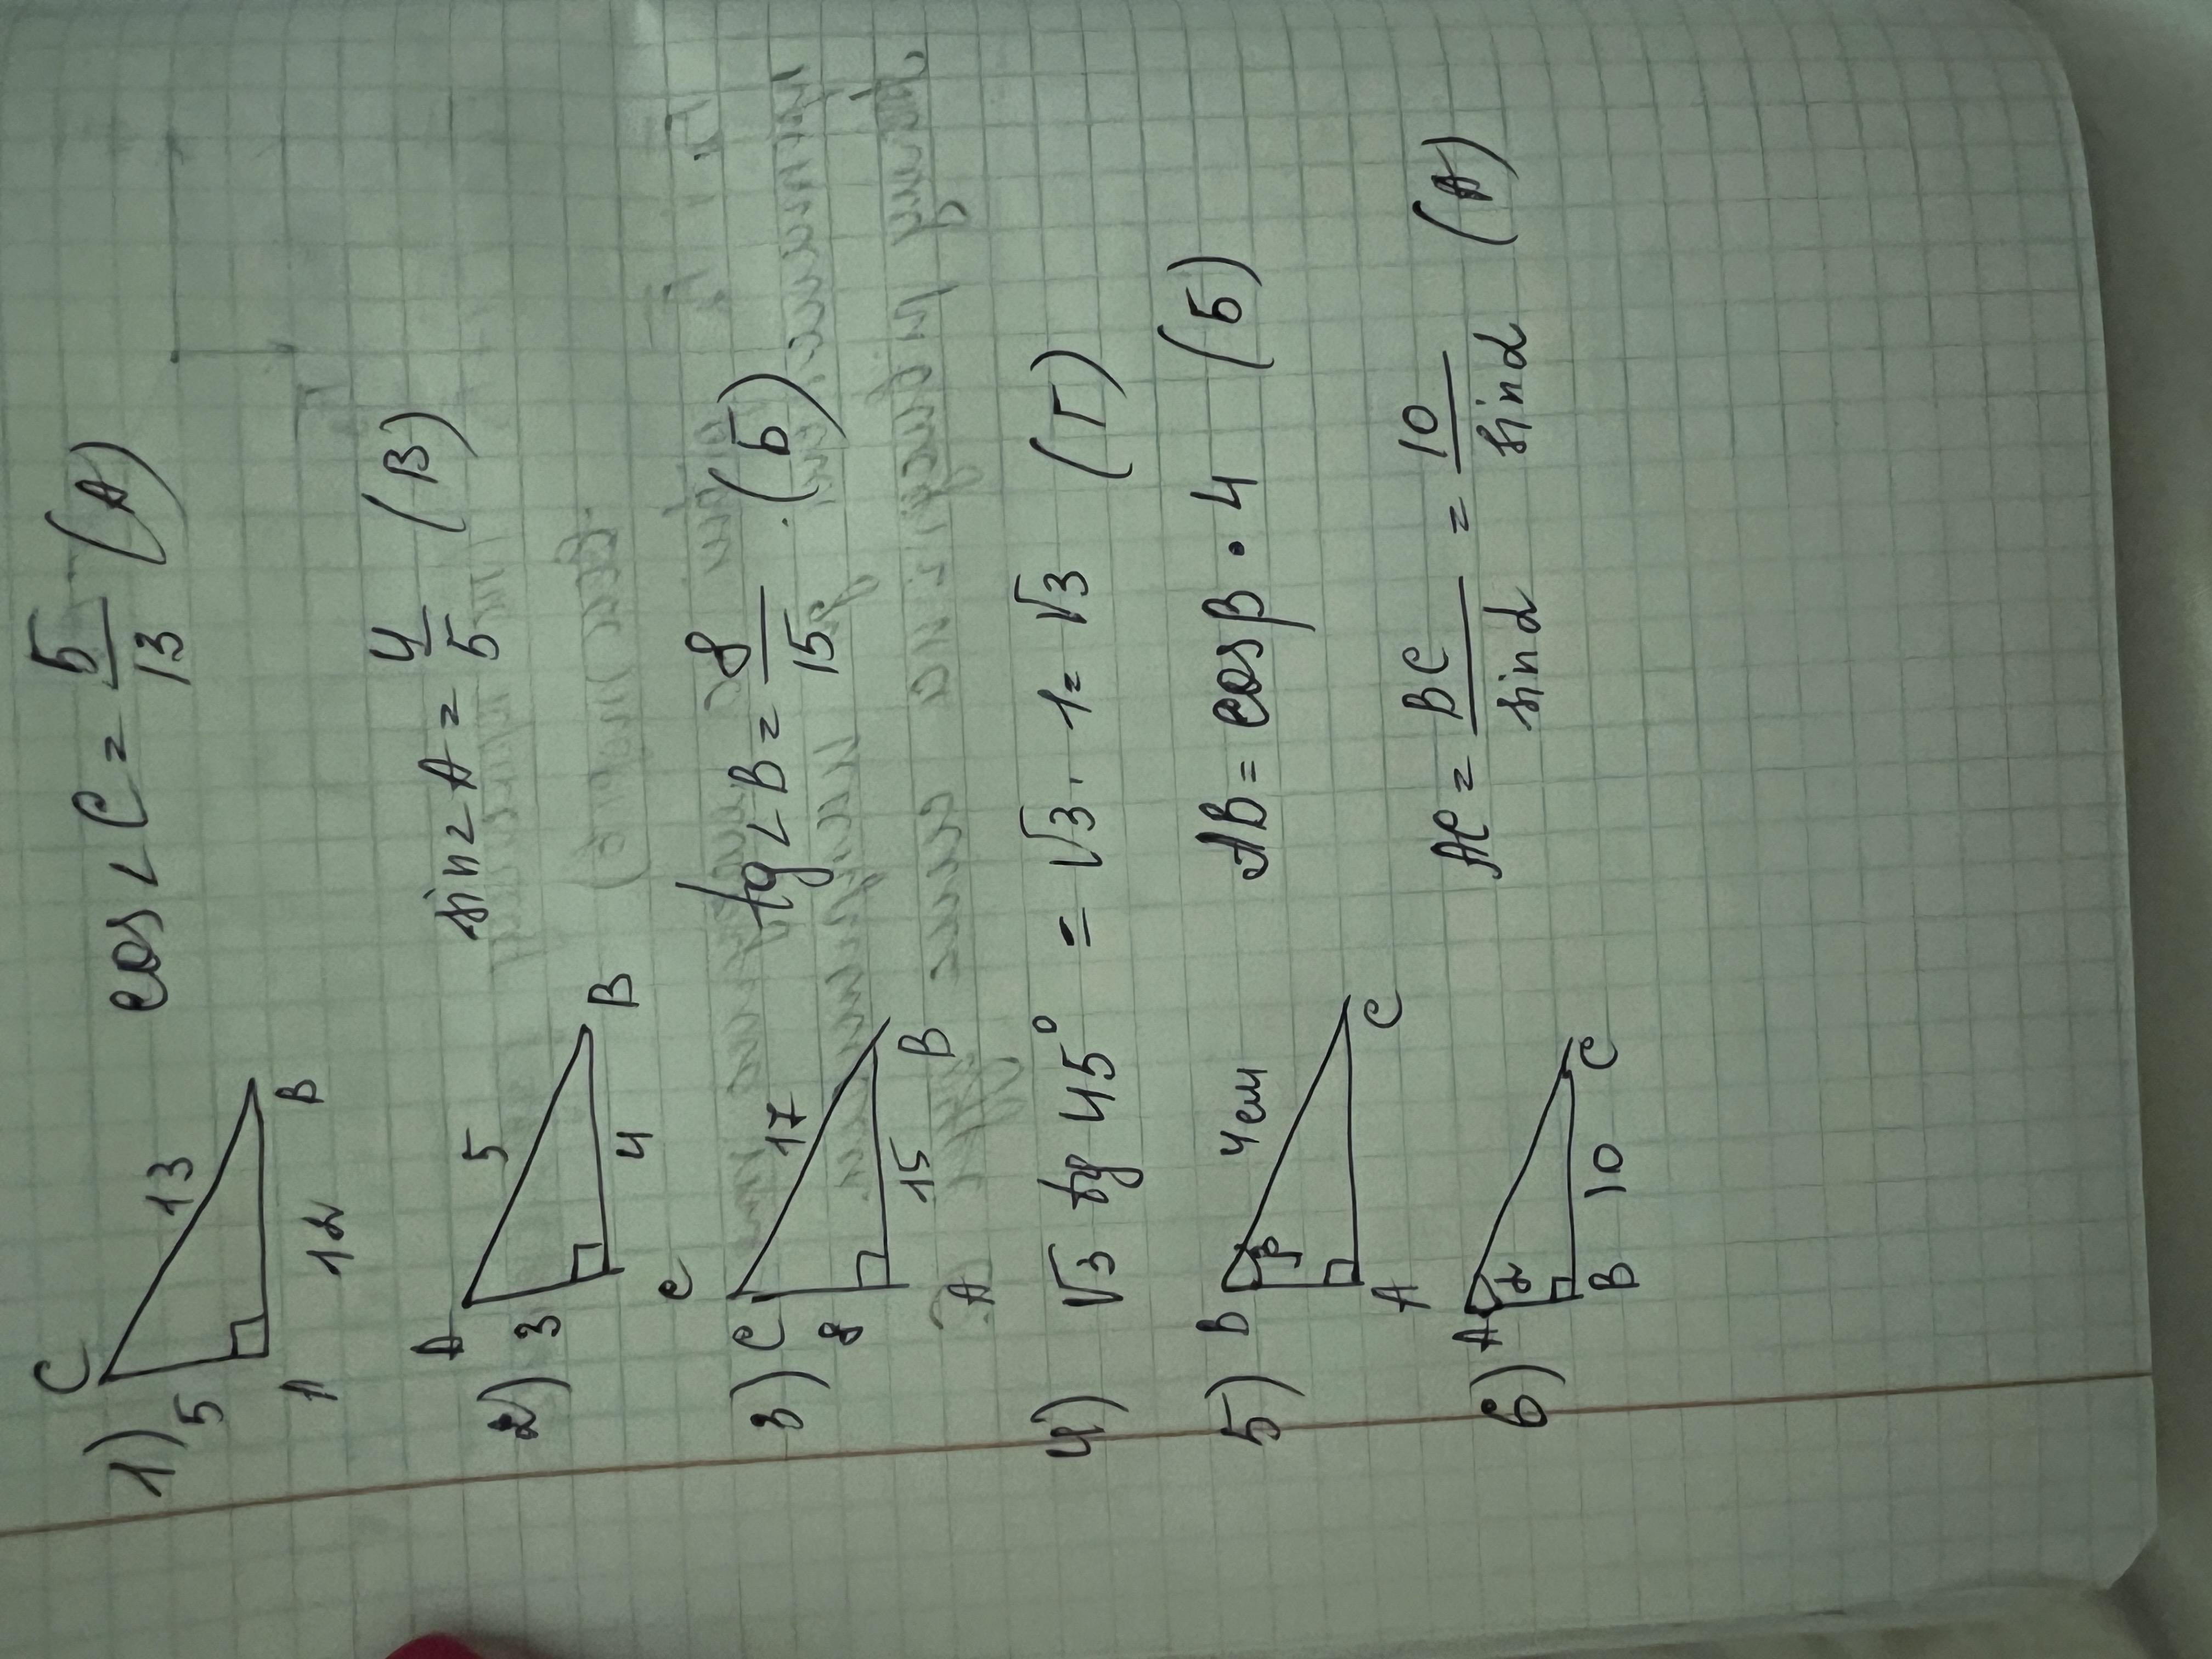 1) C 5 13 A 12 B cos∠C = 5/13 (А)
2) A 3 5 4 B C sin∠A = 4/5 (В)
3) C 8 17 A 15 B tg∠B = 8/15 (Б)
4) √3 tg 45° = √3 · 1 = √3 (Г)
5) B β 4см A C AB = cosβ · 4 (Б)
6) A α B 10 C AC = BC/sinα = 10/sinα (А)